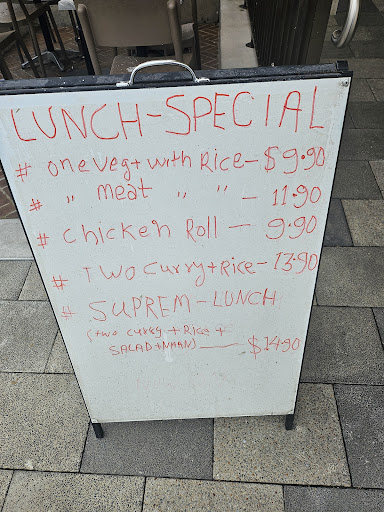 LUNCH-SPECIAL
# one veg+ with Rice - $9.90
# " meat " " - 11.90
# chicken Roll - 9.90
# Two curry+Rice - 13.90
# SUPREM-LUNCH
(two curry + Rice +
SALAD+NAAN) — $14.90